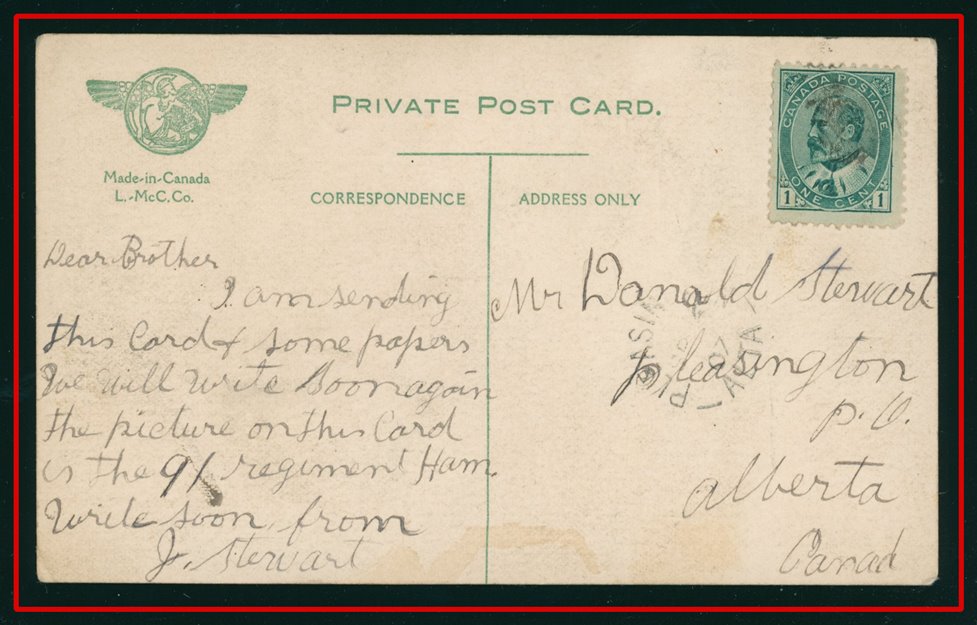 Made-in-Canada
L.-McC. Co.
PRIVATE POST CARD.
CORRESPONDENCE
ADDRESS ONLY
CANADA POSTAGE
ONE CENT
1 1
Dear Brother
I am sending
this Card & some papers
We will write soon again
the picture on this Card
is the 91 regiment Ham.
Write soon from
J. Stewart
Mr Donald Stewart
Pleasington
P. O.
Alberta
Canad
07
ALTA